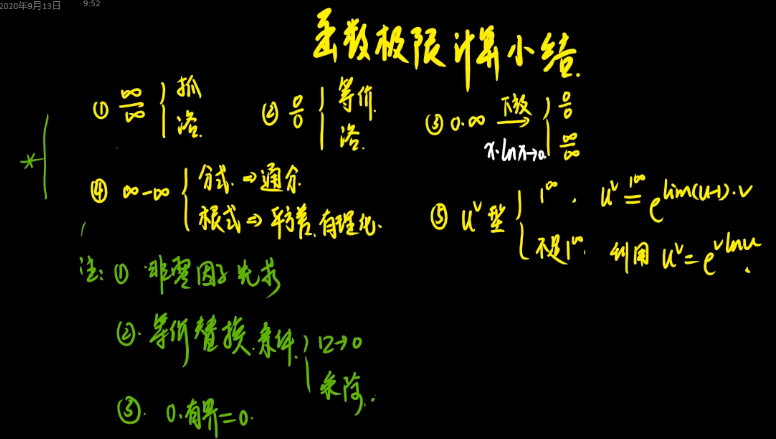 2020年9月13日 9:52
函数极限计算小结.
① ∞/∞ { 抓 洛.
② 0/0 { 等价. 洛.
③ 0·∞ 下放→ { 0/0 ∞/∞
x·lnx→0.
④ ∞-∞ { 分式. ⇒通分 根式⇒平方差.有理化.
⑤ u^v型 { 1^∞. u^v =(1^∞) e^{lim(u-1)·v} 不是1^∞. 利用 u^v=e^{vlnu}.
注: ① 非零因子先求
②. 等价替换.条件. { □→0 乘除.
③. 0.有界=0.